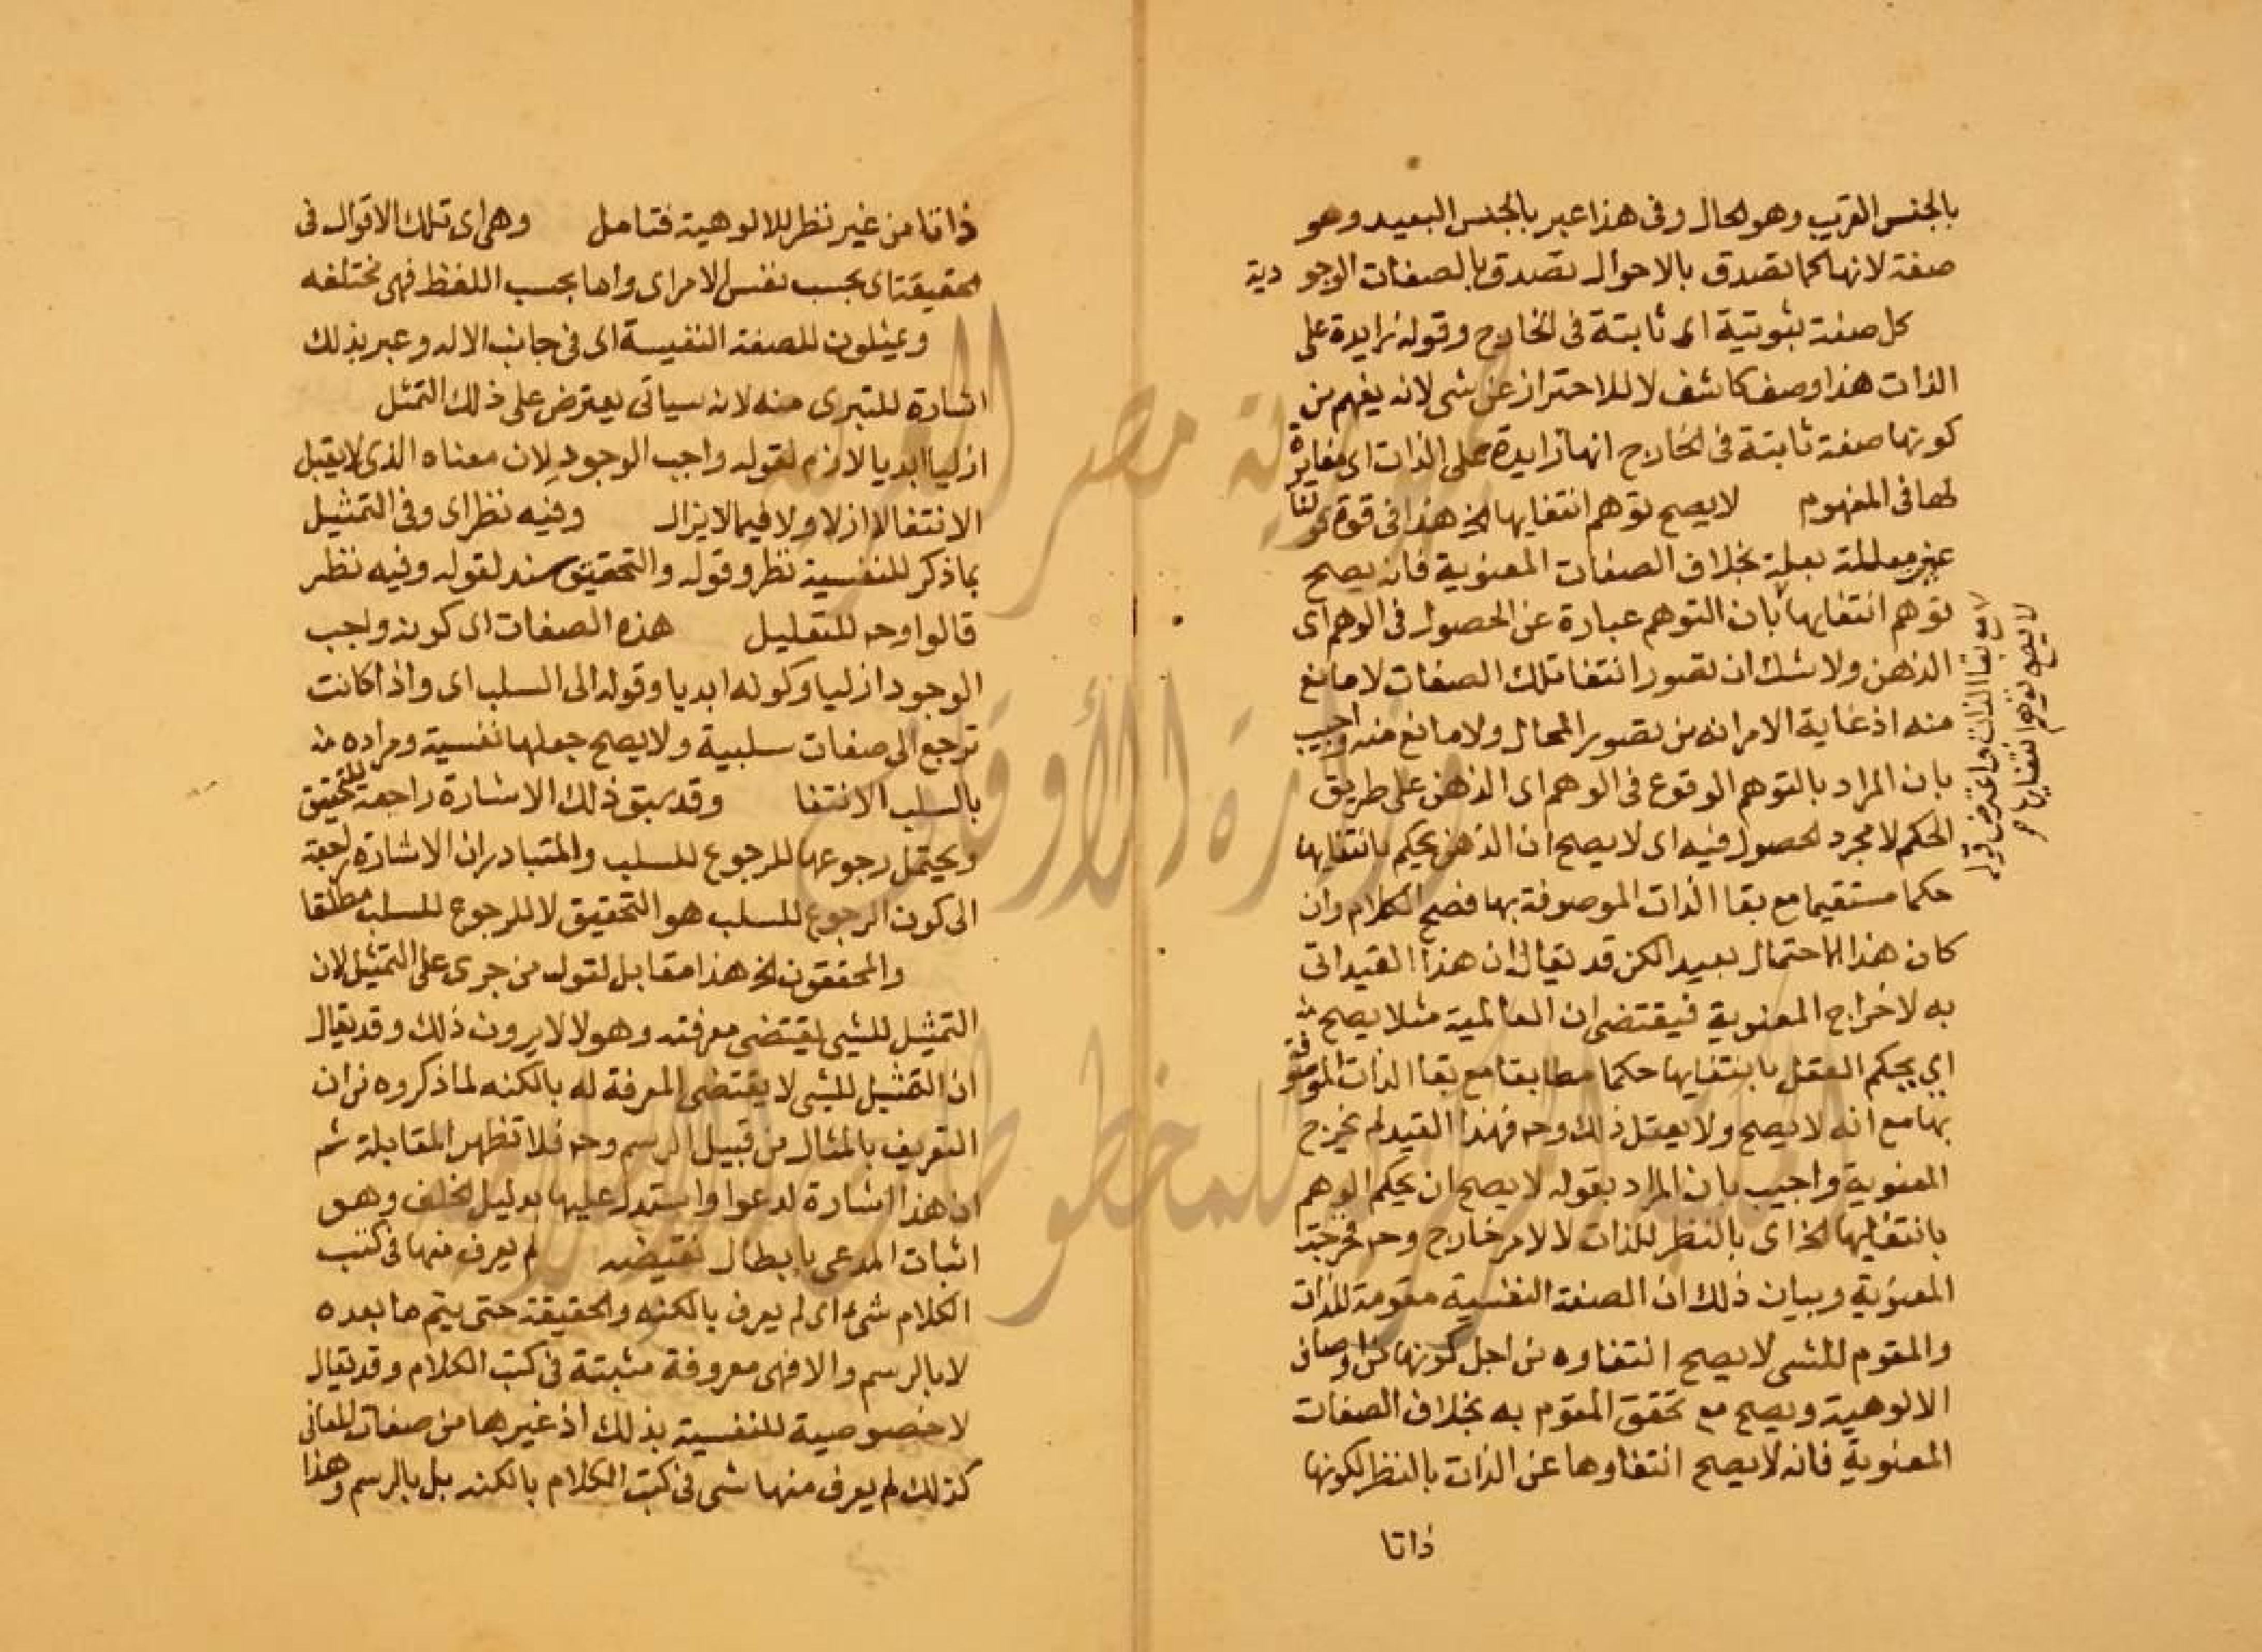 بالجنس القريب وهو الحال وفى هذا عبر بالجنس البعيد وهو
صفة لانها كما تصدق بالاحوال تصدق بالصفات الوجودية
كل صفة ثبوتية اى ثابتة فى الخارج وقوله زايدة على
الذات هذا وصف كاشف لا للاحتراز عن شى لانه يفهم من
كونها صفة ثابتة فى الخارج انها زايدة على الذات اى مغايرة
لها فى المفهوم لا يصح توهم انتفايها الخ هذا فى قوة قولنا
غير معللة بعلة بخلاف الصفات المعنوية فانه يصح
توهم انتفايها بان التوهم عبارة عن الحصول فى الوهم اى
الذهن ولا شك ان تصور انتفا تلك الصفات لا مانع
منه اذ غاية الامر انه من تصور المحال ولا مانع منه واجيب
بان المراد بالتوهم الوقوع فى الوهم اى الذهن على طريق
الحكم لا مجرد الحصول فيه اى لا يصح ان الذهن يحكم بانتفايها
حكما مستقيما مع بقا الذات الموصوفة بها فصح الكلام وان
كان هذا الاحتمال بعيد الكن قد يقال ان هذا القيد اتى
به لاخراج المعنوية فيقتضى ان العالمية مثلا يصح
اي يحكم العقل بانتفايها حكما مطابقا مع بقا الذات الموصوفة
بها مع انه لا يصح ولا يعقل ذلك وح فهذا القيد لم يخرج
المعنوية واجيب بان المراد بقوله لا يصح ان يحكم الوهم
بانتفايها الخ اى بالنظر للذات لا لامر خارج وح فخرجت
المعنوية وبيان ذلك ان الصفة النفسية مقومة للذات
والمقوم للشى لا يصح انتفاوه من اجل كونها من اوصاف
الالوهية ويصح مع تحقق المقوم به بخلاف الصفات
المعنوية فانه لا يصح انتفاوها عن الذات بالنظر لكونها
ذاتا
مع بقا الذات واعترض قوله
لا يصح توهم انتفايها
ذاتا من غير نظر للالوهية فتامل وهى اى تلك الاقوال فى
الحقيقة اى بحسب نفس الامر اى واما بحسب اللفظ فهى مختلفه
ويمثلون للصفة النفيسة اى فى جانب الاله وعبر بذلك
اشارة للتبرى منه لانه سياتى يعترض على ذلك التمثل
ازليا ابديا لازم لقوله واجب الوجود لان معناه الذى لا يقبل
الانتفا لا ازلا ولا فيما لا يزال وفيه نظر اى وفى التمثيل
بما ذكر للنفسية نظر وقوله والتحقيق سند لقوله وفيه نظر
قالوا وح للتعليل هذه الصفات اى كونه واجب
الوجود ازليا وكونه ابديا وقوله الى السلب اى واذا كانت
ترجع الى صفات سلبية ولا يصح جعلها نفسية ومراده
بالسلب الانتفا وقد سبق ذلك الاشارة راجعة للتحقيق
ويحتمل رجوعها للرجوع للسلب والمتبادر ان الاشارة راجعة
الى كون الرجوع للسلب هو التحقيق لا للرجوع للسلب مطلقا
والمحققون الخ هذا مقابل لقوله من جرى على التمثيل لان
التمثيل للشى يقتضى معرفته وهولا لا يرون ذلك وقد يقال
ان التمثيل للشى لا يقتضى المعرفة له بالكنه لما ذكروه من ان
التعريف بالمثال من قبيل الرسم وح فلا تظهر المقابلة ثم
ان هذا اشارة لدعوا واستدل عليها بدليل الخلف وهو
اثبات المدعى بابطال نقيضه لم يعرف منها فى كتب
الكلام شىء اى لم يعرف بالكنه والحقيقة حتى يتم ما بعده
لا بالرسم والا فهى معروفة مثبتة فى كتب الكلام وقد يقال
لا خصوصية للنفسية بذلك اذ غيرها من صفات المعانى
كذلك لم يعرف منها شى فى كتب الكلام بالكنه بل بالرسم وهذا
جمهورية مصر العربية
وزارة الأوقاف